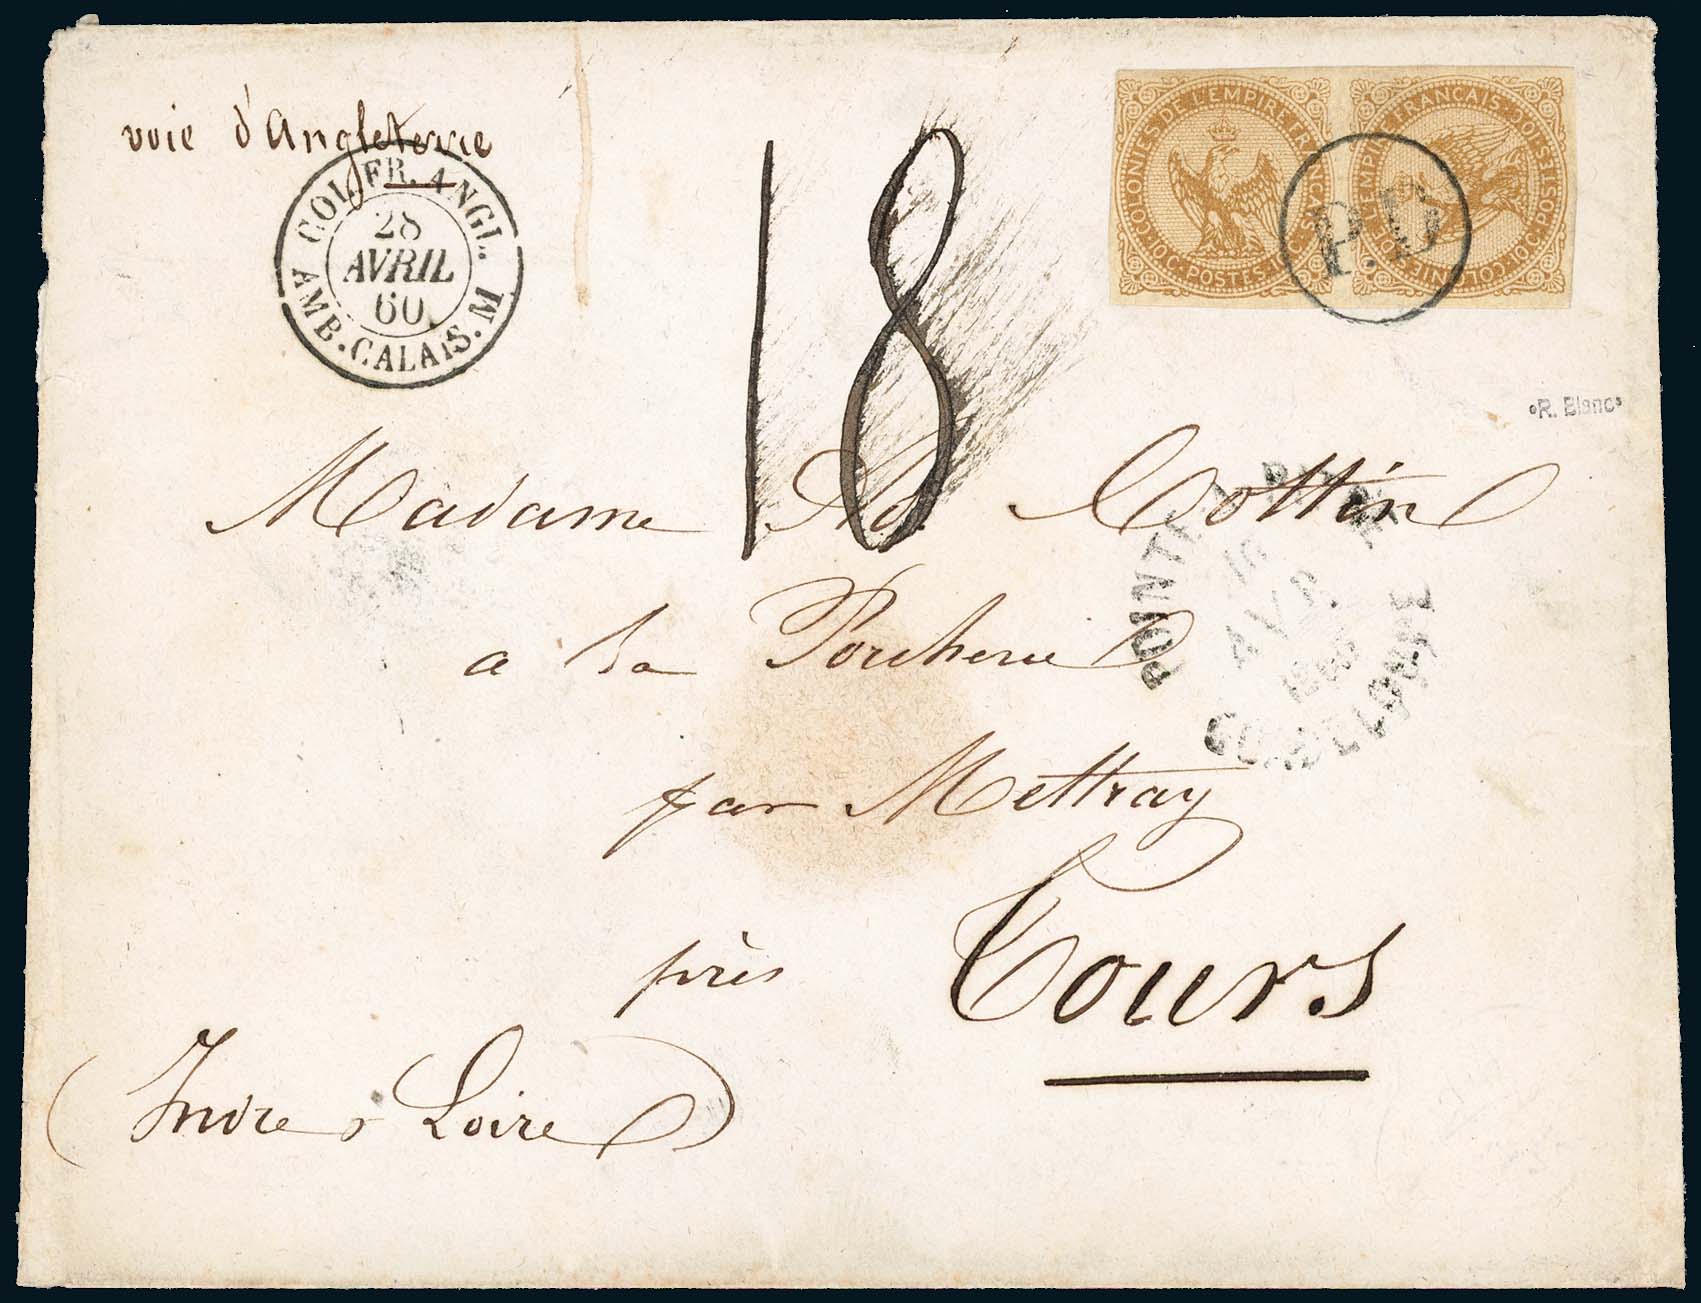 voie d'Angleterre
COL. FR. ANGL.
28
AVRIL
60
AMB. CALAIS. M
18
COLONIES DE L'EMPIRE FRANÇAIS
10 C. POSTES 10 C.
COLONIES DE L'EMPIRE FRANÇAIS
10 C. POSTES 10 C.
P.D
R. Blanc
Madame Ad. Cottin
POINTE A PITRE
16
AVR
1860
GUADELOUPE
a la Poucherie
par Mettray
près Tours
(Indre & Loire)